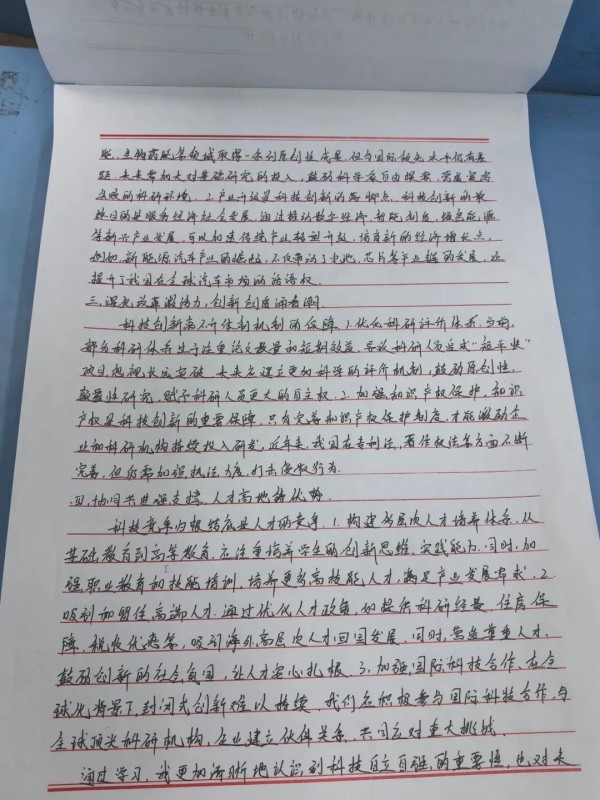 能、生物药肥等领域取得一系列原创性成果,但与国际领先水平仍有差
距。未来需加大对基础研究的投入,鼓励科学家自由探索,营造宽容
失败的科研环境。2.产业升级是科技创新的落脚点。科技创新的最
终目的是服务经济社会发展。通过推动数字经济、智能制造、绿色能源
等新兴产业发展,可以加速传统产业转型升级,培育新的经济增长点。
例如,新能源汽车产业的崛起,不仅带动了电池、芯片等产业链的发展,还
提升了我国在全球汽车市场的话语权。
三、深化改革激活力,创新创造涌春潮。
科技创新离不开体制机制的保障。1.优化科研评价体系。当前,
部分科研体系过于注重论文数量和短期效益,导致科研人员追求“短平快”
项目,忽视长远突破。未来应建立更加科学的评价机制,鼓励原创性、
颠覆性研究,赋予科研人员更大的自主权。2.加强知识产权保护。知识
产权是科技创新的重要保障,只有完善知识产权保护制度,才能激励企
业和科研机构持续投入研发。近年来,我国在专利法、著作权法等方面不断
完善,但仍需加强执法力度,打击侵权行为。
四、协同共进强支撑,人才高地聚优势
科技竞争归根结底是人才的竞争。1.构建多层次人才培养体系。从
基础教育到高等教育,应注重培养学生的创新思维、实践能力。同时,加
强职业教育和技能培训,培养更多高技能人才,满足产业发展需求。2.
吸引和留住高端人才。通过优化人才政策,如提供科研经费、住房保
障、税收优惠等,吸引海外高层次人才回国发展。同时,营造尊重人才、
鼓励创新的社会氛围,让人才安心扎根。3.加强国际科技合作。在全
球化背景下,封闭式创新难以持续。我们应积极参与国际科技合作,与
全球顶尖科研机构、企业建立伙伴关系,共同应对重大挑战。
通过学习,我更加清晰地认识到科技自立自强的重要性,也对未